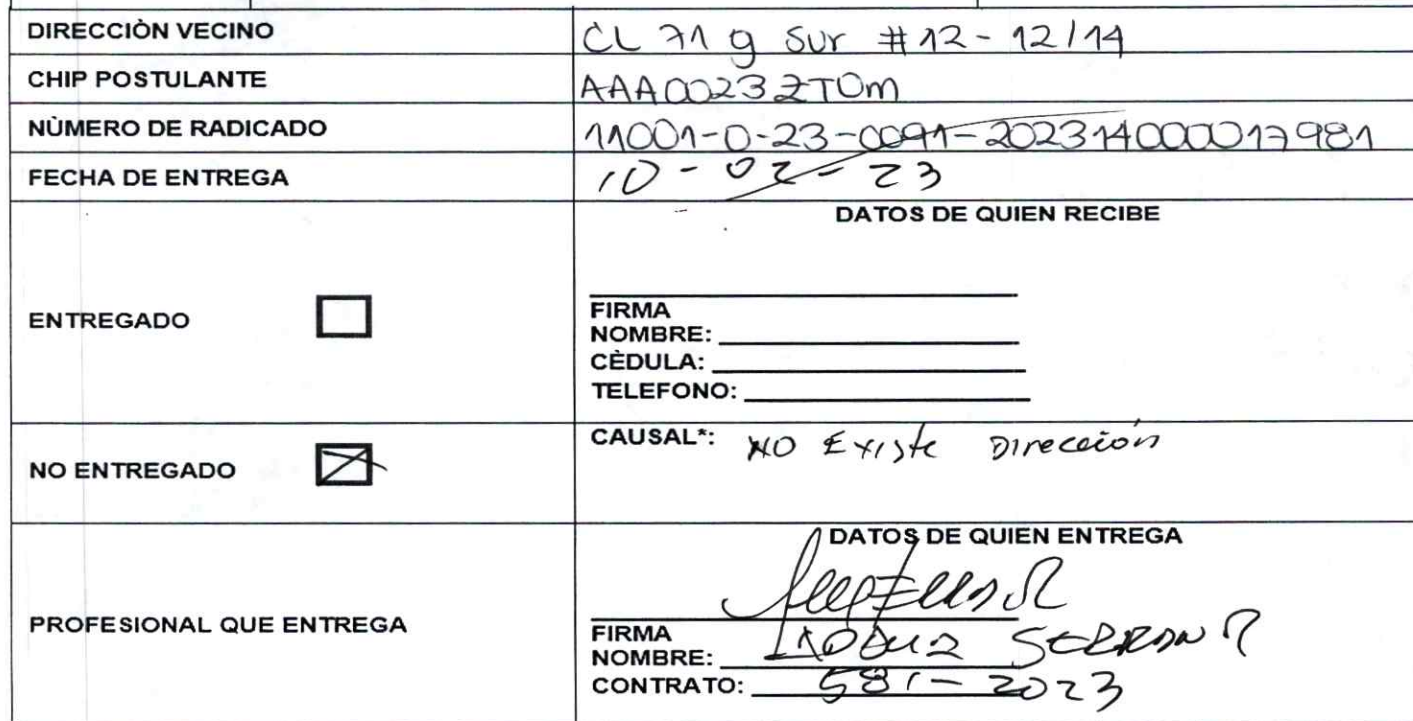 DIRECCIÒN VECINO CL 71 g SUr #12-12/14
CHIP POSTULANTE AAA0023ZTOm
NÙMERO DE RADICADO 11001-0-23-0091-202314000017981
FECHA DE ENTREGA 10-02-23
DATOS DE QUIEN RECIBE
ENTREGADO
FIRMA
NOMBRE:
CÈDULA:
TELEFONO:
NO ENTREGADO
CAUSAL*: NO Existe Dirección
DATOS DE QUIEN ENTREGA
PROFESIONAL QUE ENTREGA
FIRMA
NOMBRE:
CONTRATO: 581-2023